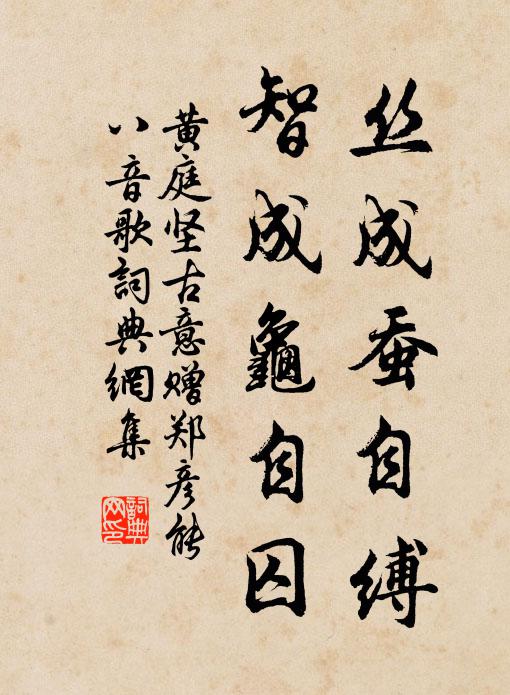 丝成蚕自缚
智成龜自囚
黄庭坚古意赠郑彦能
八音歌詞典網集
詞典
网印